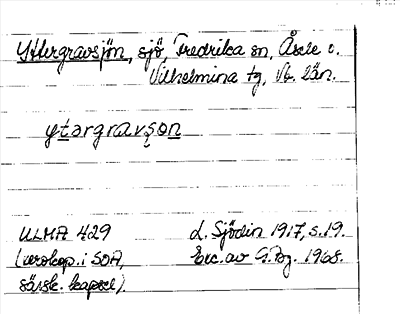 Yttergravsjön, sjö, Fredrika sn, Åsele o.
Vilhelmina tg, Vb. län.
ytargravşon
ULMA 429
L. Sjödin 1917, s. 19.
(xerokop. i SOA,
Exc. av G.Pg. 1968.
särsk. kapsel).